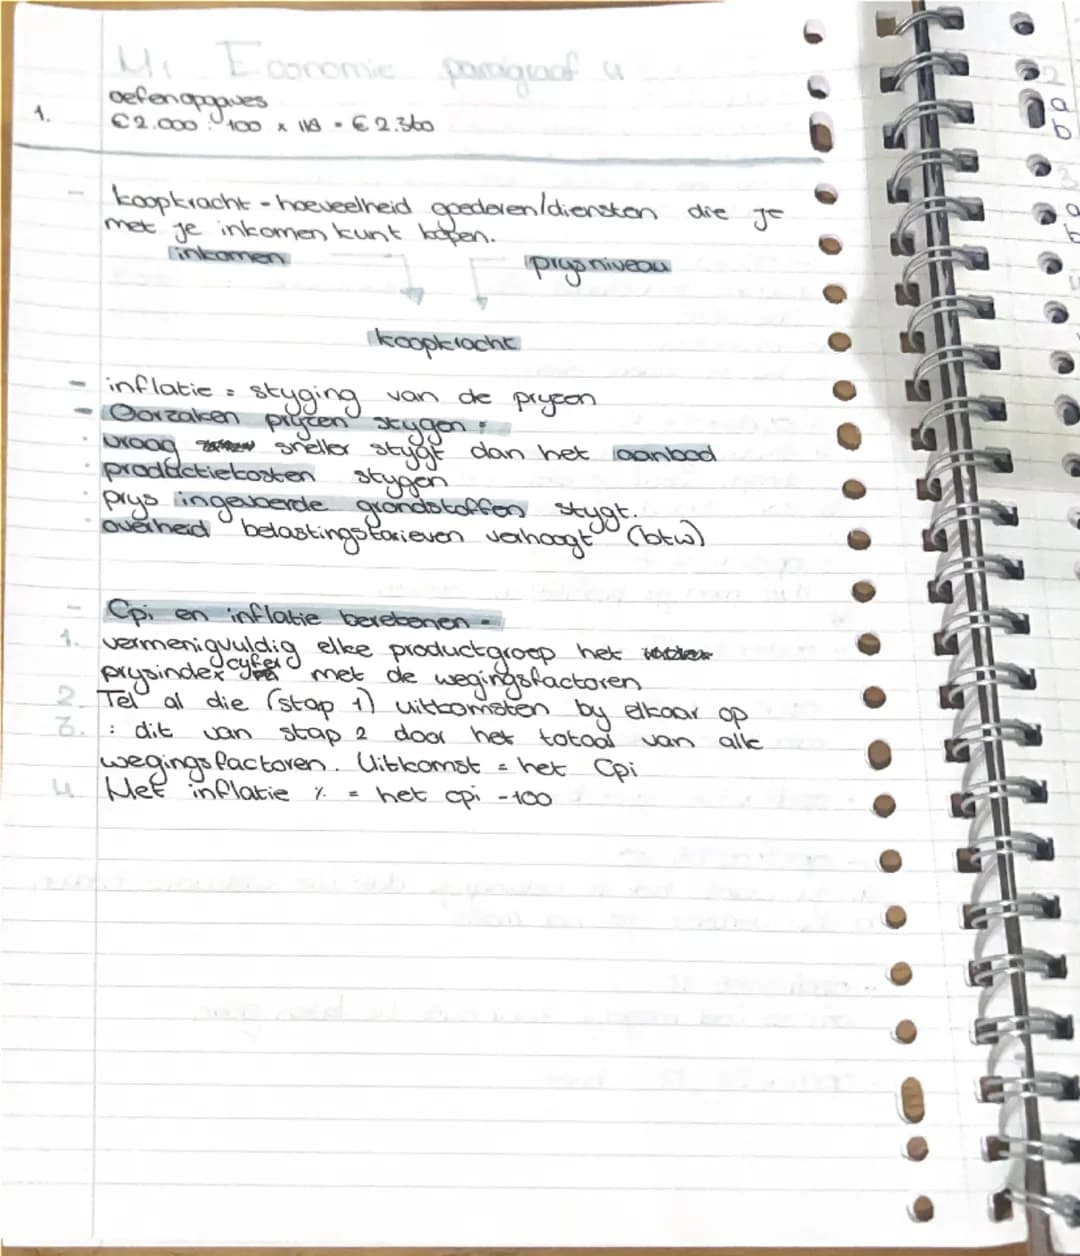 H1 Economie paragraaf 4
oefenopgaves
1. €2.000 : 100 x 118 = €2.360
- koopkracht = hoeveelheid goederen/diensten die je
met je inkomen kunt kopen.
inkomen prijsniveau
koopkracht
- inflatie = stijging van de prijzen
- Oorzaken prijzen stijgen :
· vraag sneller stijgt dan het aanbod
· productiekosten stijgen
· prijs ingevoerde grondstoffen stijgt.
· overheid belastingstarieven verhoogt (btw)
- Cpi en inflatie berekenen =
1. vermenigvuldig elke productgroep het
prijsindexcijfer met de wegingsfactoren
2. Tel al die (stap 1) uitkomsten bij elkaar op
3. : dit van stap 2 door het totaal van alle
wegingsfactoren. Uitkomst = het Cpi
4 Het inflatie % = het cpi -100
2
a
b
3
a
b